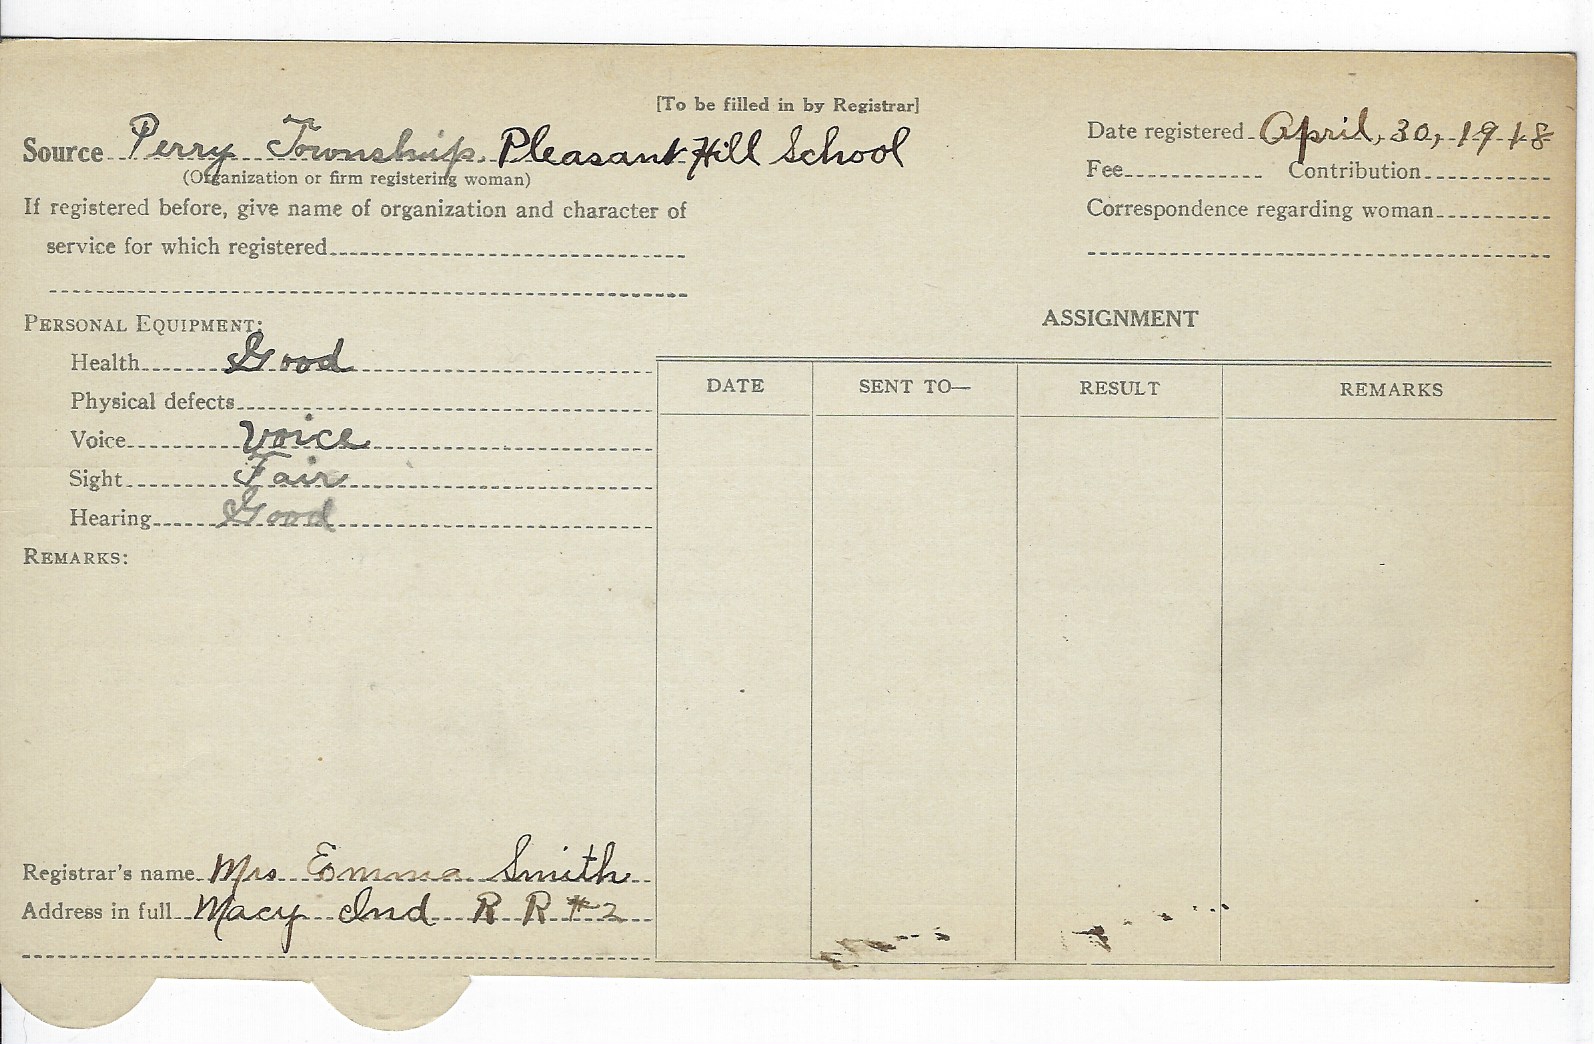 [To be filled in by Registrar]
Source Perry Township. Pleasant Hill School
(Organization or firm registering woman)
If registered before, give name of organization and character of
service for which registered
Date registered April, 30, 1918
Fee Contribution
Correspondence regarding woman
PERSONAL EQUIPMENT:
Health Good
Physical defects
Voice Voice
Sight Fair
Hearing Good
REMARKS:
ASSIGNMENT
DATE SENT TO— RESULT REMARKS
Registrar's name Mrs Emma Smith
Address in full Macy Ind R R #2